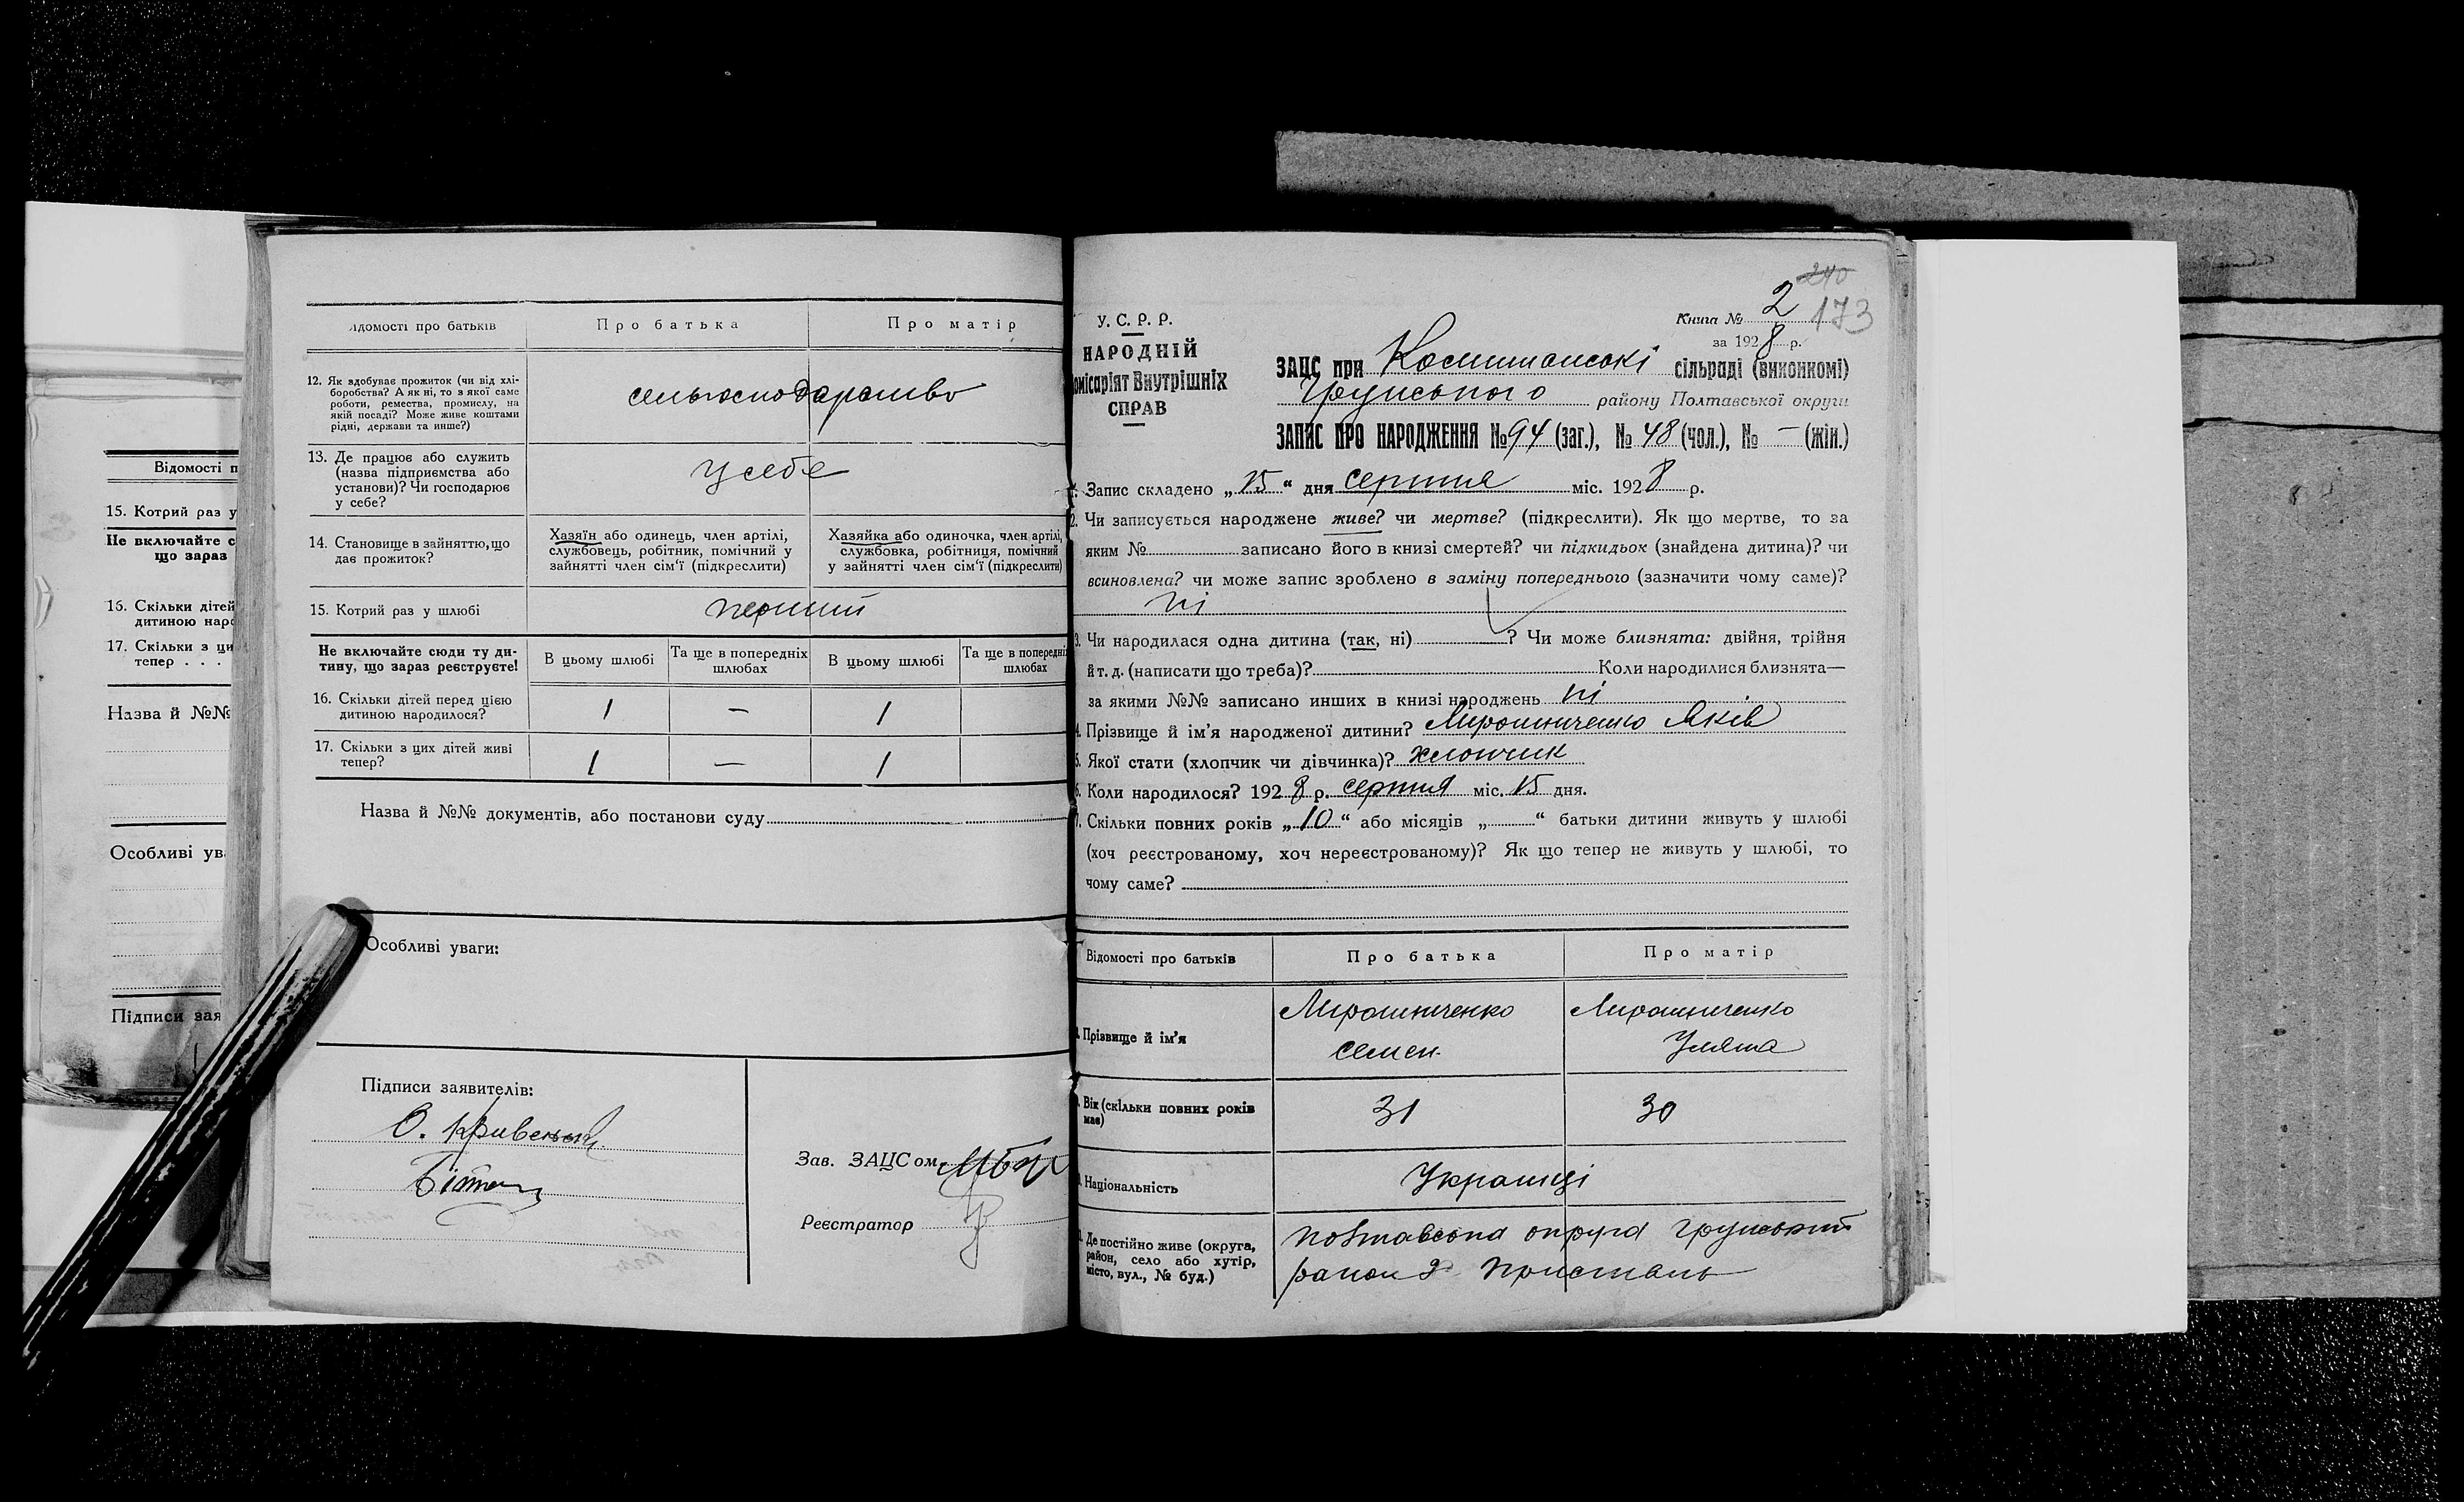 Відомості п
15. Котрий раз у
Не включайте с
що зараз
16. Скільки дітей
дитиною наро
17. Скільки з ци
тепер . . .
Назва й №№
Особливі ув
Підписи зая
ідомості про батьків
Про батька
Про матір
12. Як здобуває прожиток (чи від хлі-
боробства? А як ні, то з якої саме
роботи, ремества, промислу, на
якій посаді? Може живе коштами
рідні, держави та инше?)
сельхсподарство
13. Де працює або служить
(назва підприємства або
установи)? Чи господарює
у себе?
у себе
14. Становище в зайняттю, що
дає прожиток?
Хазяїн або одинець, член артілі,
службовець, робітник, помічний у
зайнятті член сім'ї (підкреслити)
Хазяйка або одиночка, член артілі,
службовка, робітниця, помічний
у зайнятті член сім'ї (підкреслити)
15. Котрий раз у шлюбі
перший
Не включайте сюди ту ди-
тину, що зараз реєструєте!
В цьому шлюбі
Та ще в попередніх
шлюбах
В цьому шлюбі
Та ще в попередні
шлюбах
16. Скільки дітей перед цією
дитиною народилося?
1 — 1
17. Скільки з цих дітей живі
тепер?
1 — 1
Назва й №№ документів, або постанови суду
Особливі уваги:
Підписи заявителів:
О.
Зав. ЗАЦСом
Реєстратор
240
173
У. С. Р. Р.
НАРОДНІЙ
омісаріят Внутрішніх
СПРАВ
Книга № 2
за 1928 р.
ЗАЦС при сільраді (виконкомі)
Грунського району Полтавської округи
ЗАПИС ПРО НАРОДЖЕННЯ № 94 (заг.), № 48 (чол.), № — (жін.)
1. Запис складено „ 15 “ дня серпня міс. 1928 р.
2. Чи записується народжене живе? чи мертве? (підкреслити). Як що мертве, то за
яким № записано його в книзі смертей? чи підкидьок (знайдена дитина)? чи
всиновлена? чи може запис зроблено в заміну попереднього (зазначити чому саме)?
ні
3. Чи народилася одна дитина (так, ні) ? Чи може близнята: двійня, трійня
й т. д. (написати що треба)? Коли народилися близнята—
за якими №№ записано инших в книзі народжень ні
4. Прізвище й ім'я народженої дитини? Мирошниченко Яків
5. Якої стати (хлопчик чи дівчинка)? хлопчик
6. Коли народилося? 1928 р. серпня міс. 15 дня.
7. Скільки повних років „ 10 “ або місяців „ “ батьки дитини живуть у шлюбі
(хоч реєстрованому, хоч нереєстрованому)? Як що тепер не живуть у шлюбі, то
чому саме?
Відомості про батьків
Про батька
Про матір
Прізвище й ім'я
Мирошниченко
семен
Мирошниченко
Уляна
Вік (скільки повних років
має)
31
30
Національність
Українці
Де постійно живе (округа,
район, село або хутір,
місто, вул., № буд.)
полтавська округа грунський
район Пристань